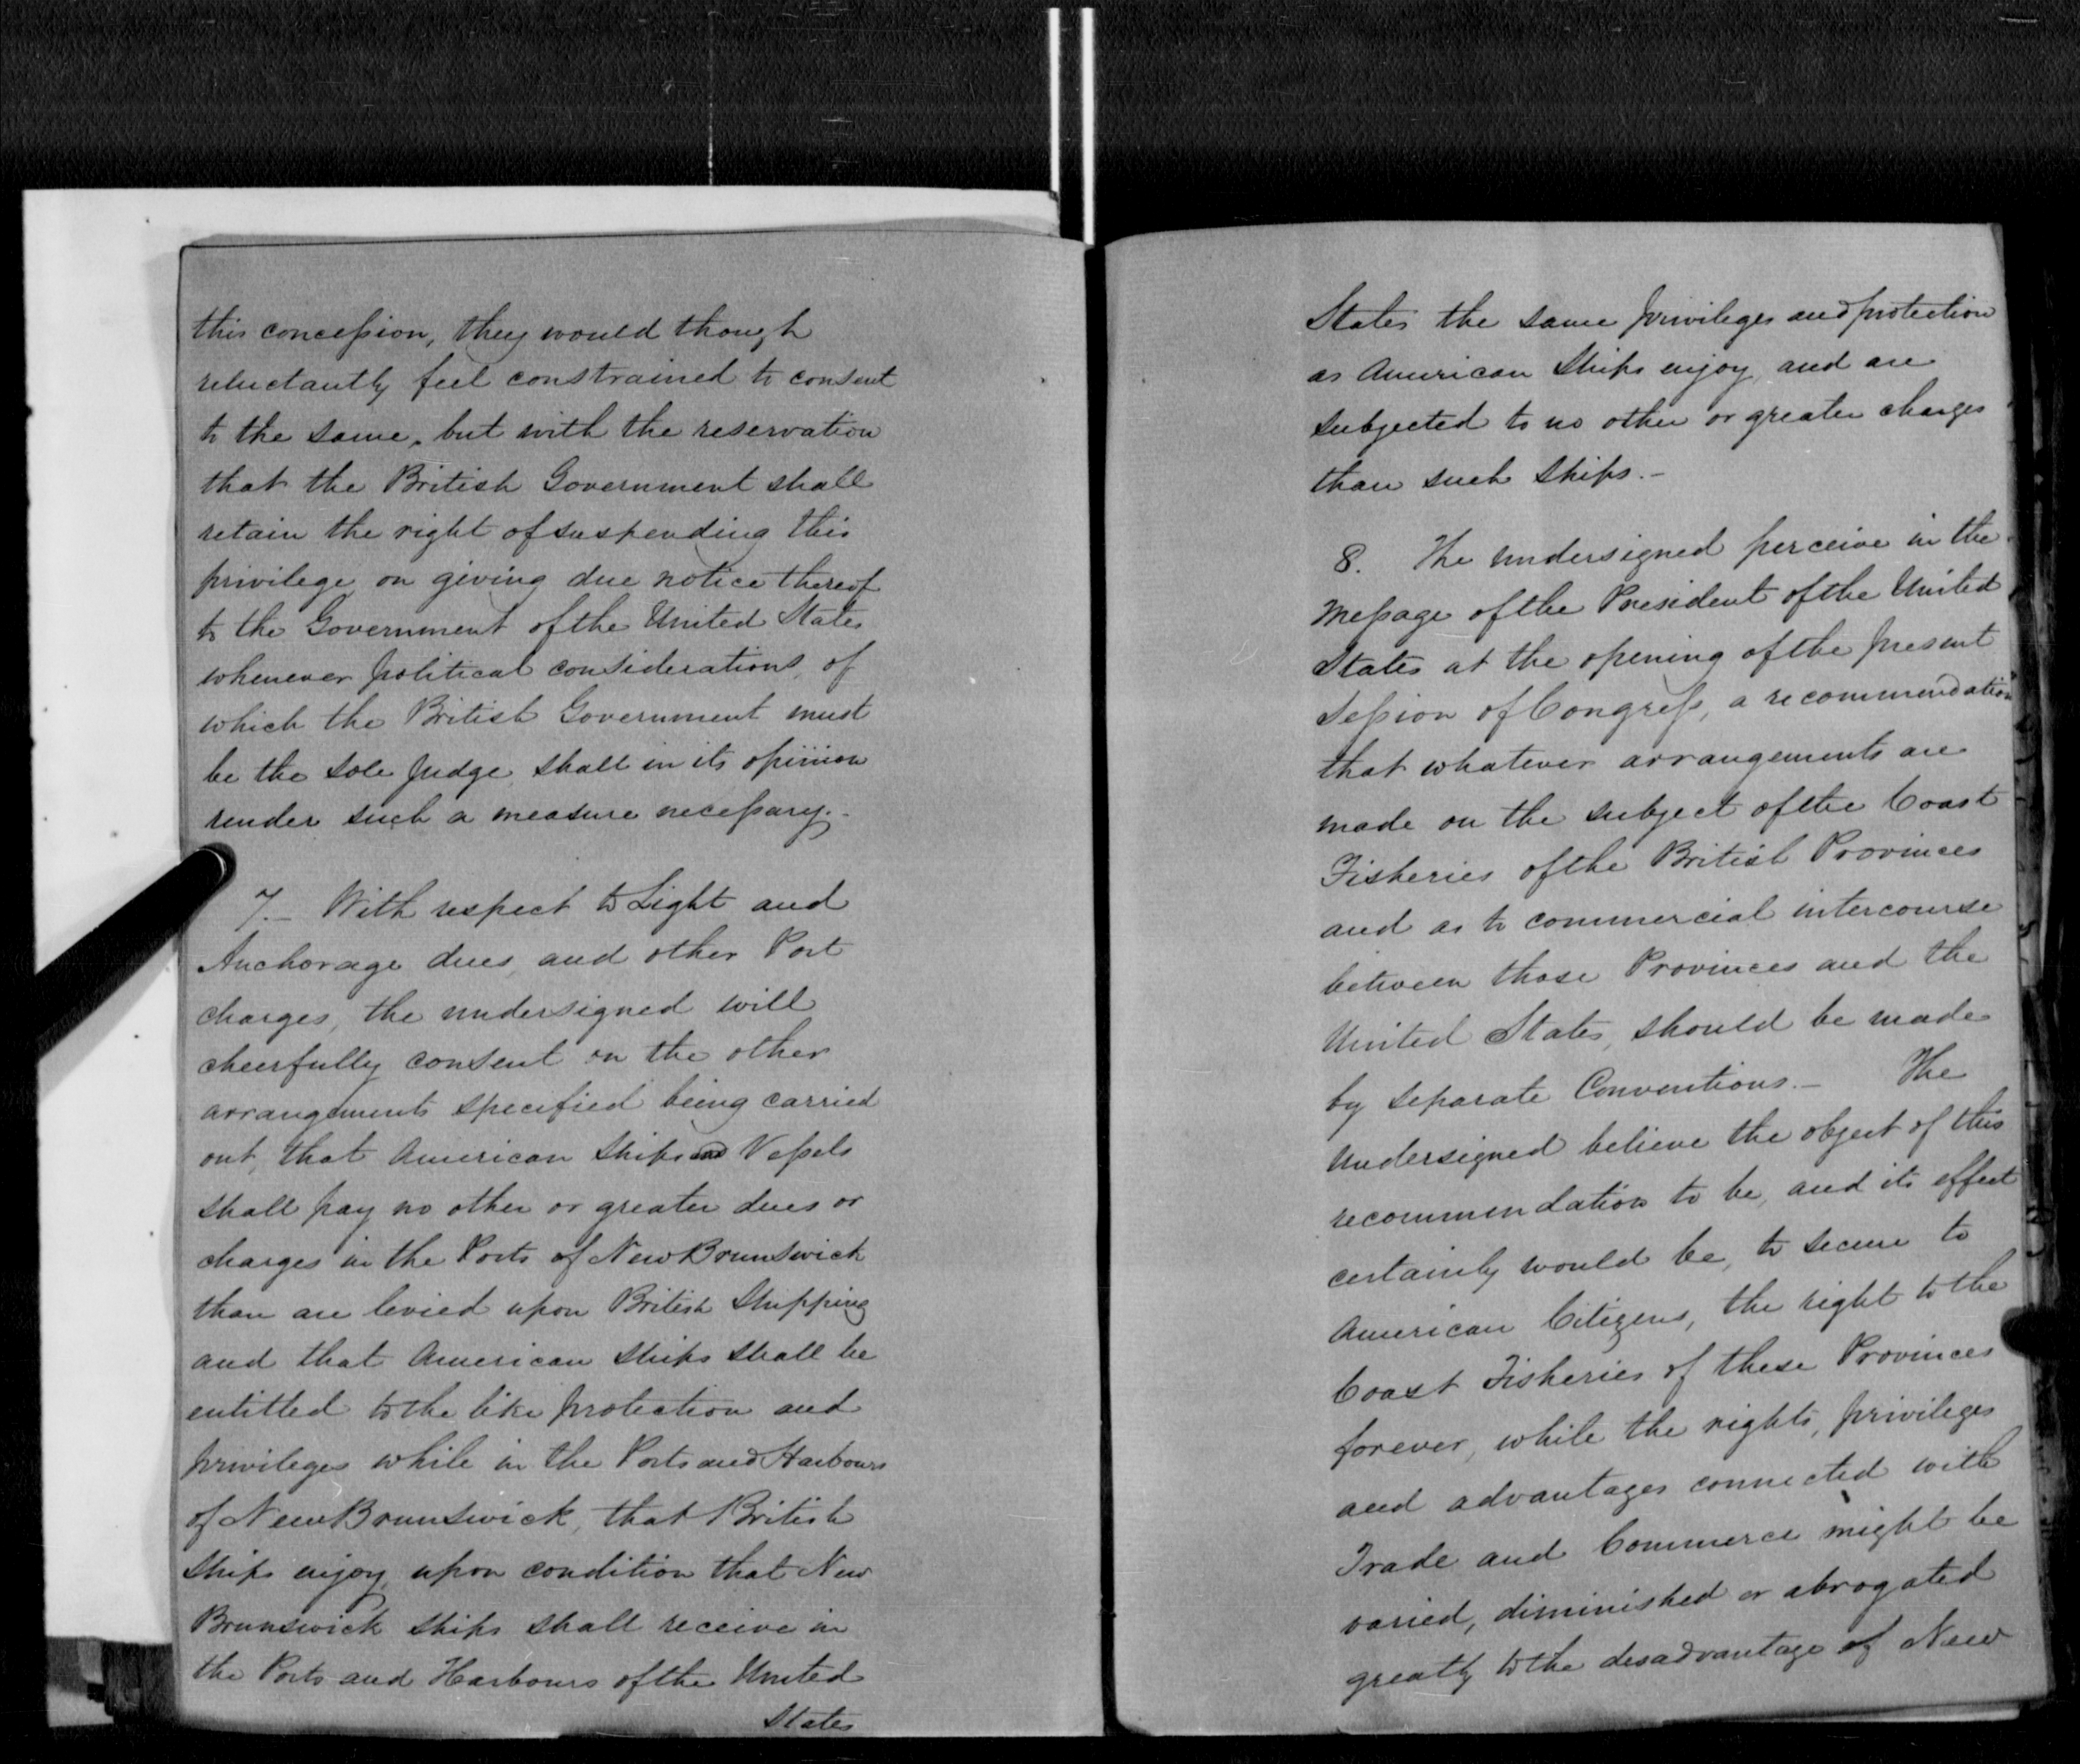 this concession, they would though
reluctantly feel constrained to consent
to the same, but with the reservation
that the British Government shall
retain the right of suspending this
privilege on giving due notice thereof
to the Government of the United States
whenever political considerations, of
which the British Government must
be the sole judge, shall in its opinion
render such a measure necessary.-
7.- With respect to Light and
Anchorage dues, and other Port
charges, the undersigned will
cheerfully consent on the other
arrangements specified being carried
out, that American Ships and Vessels
shall pay no other or greater dues or
charges in the Ports of New Brunswick
than are levied upon British Shipping
and that American Ships shall be
entitled to the like protection and
privileges while in the Ports and Harbours
of New Brunswick, that British
Ships enjoy, upon condition that New
Brunswick Ships shall receive in
the Ports and Harbours of the United
States
States the same privileges and protection
as American Ships enjoy, and are
subjected to no other or greater charges
than such Ships.-
8. The undersigned perceive in the
Message of the President of the United
States at the opening of the present
Session of Congress, a recommendation
that whatever arrangements are
made on the subject of the Coast
Fisheries of the British Provinces
and as to commercial intercourse
between those Provinces and the
United States, should be made
by separate Conventions.- The
Undersigned believe the object of this
recommendation to be, and its effect
certainly would be, to secure to
American Citizens, the right to the
Coast Fisheries of these Provinces
forever, while the rights, privileges
and advantages connected with
Trade and Commerce might be
varied, diminished or abrogated
greatly to the disadvantage of New